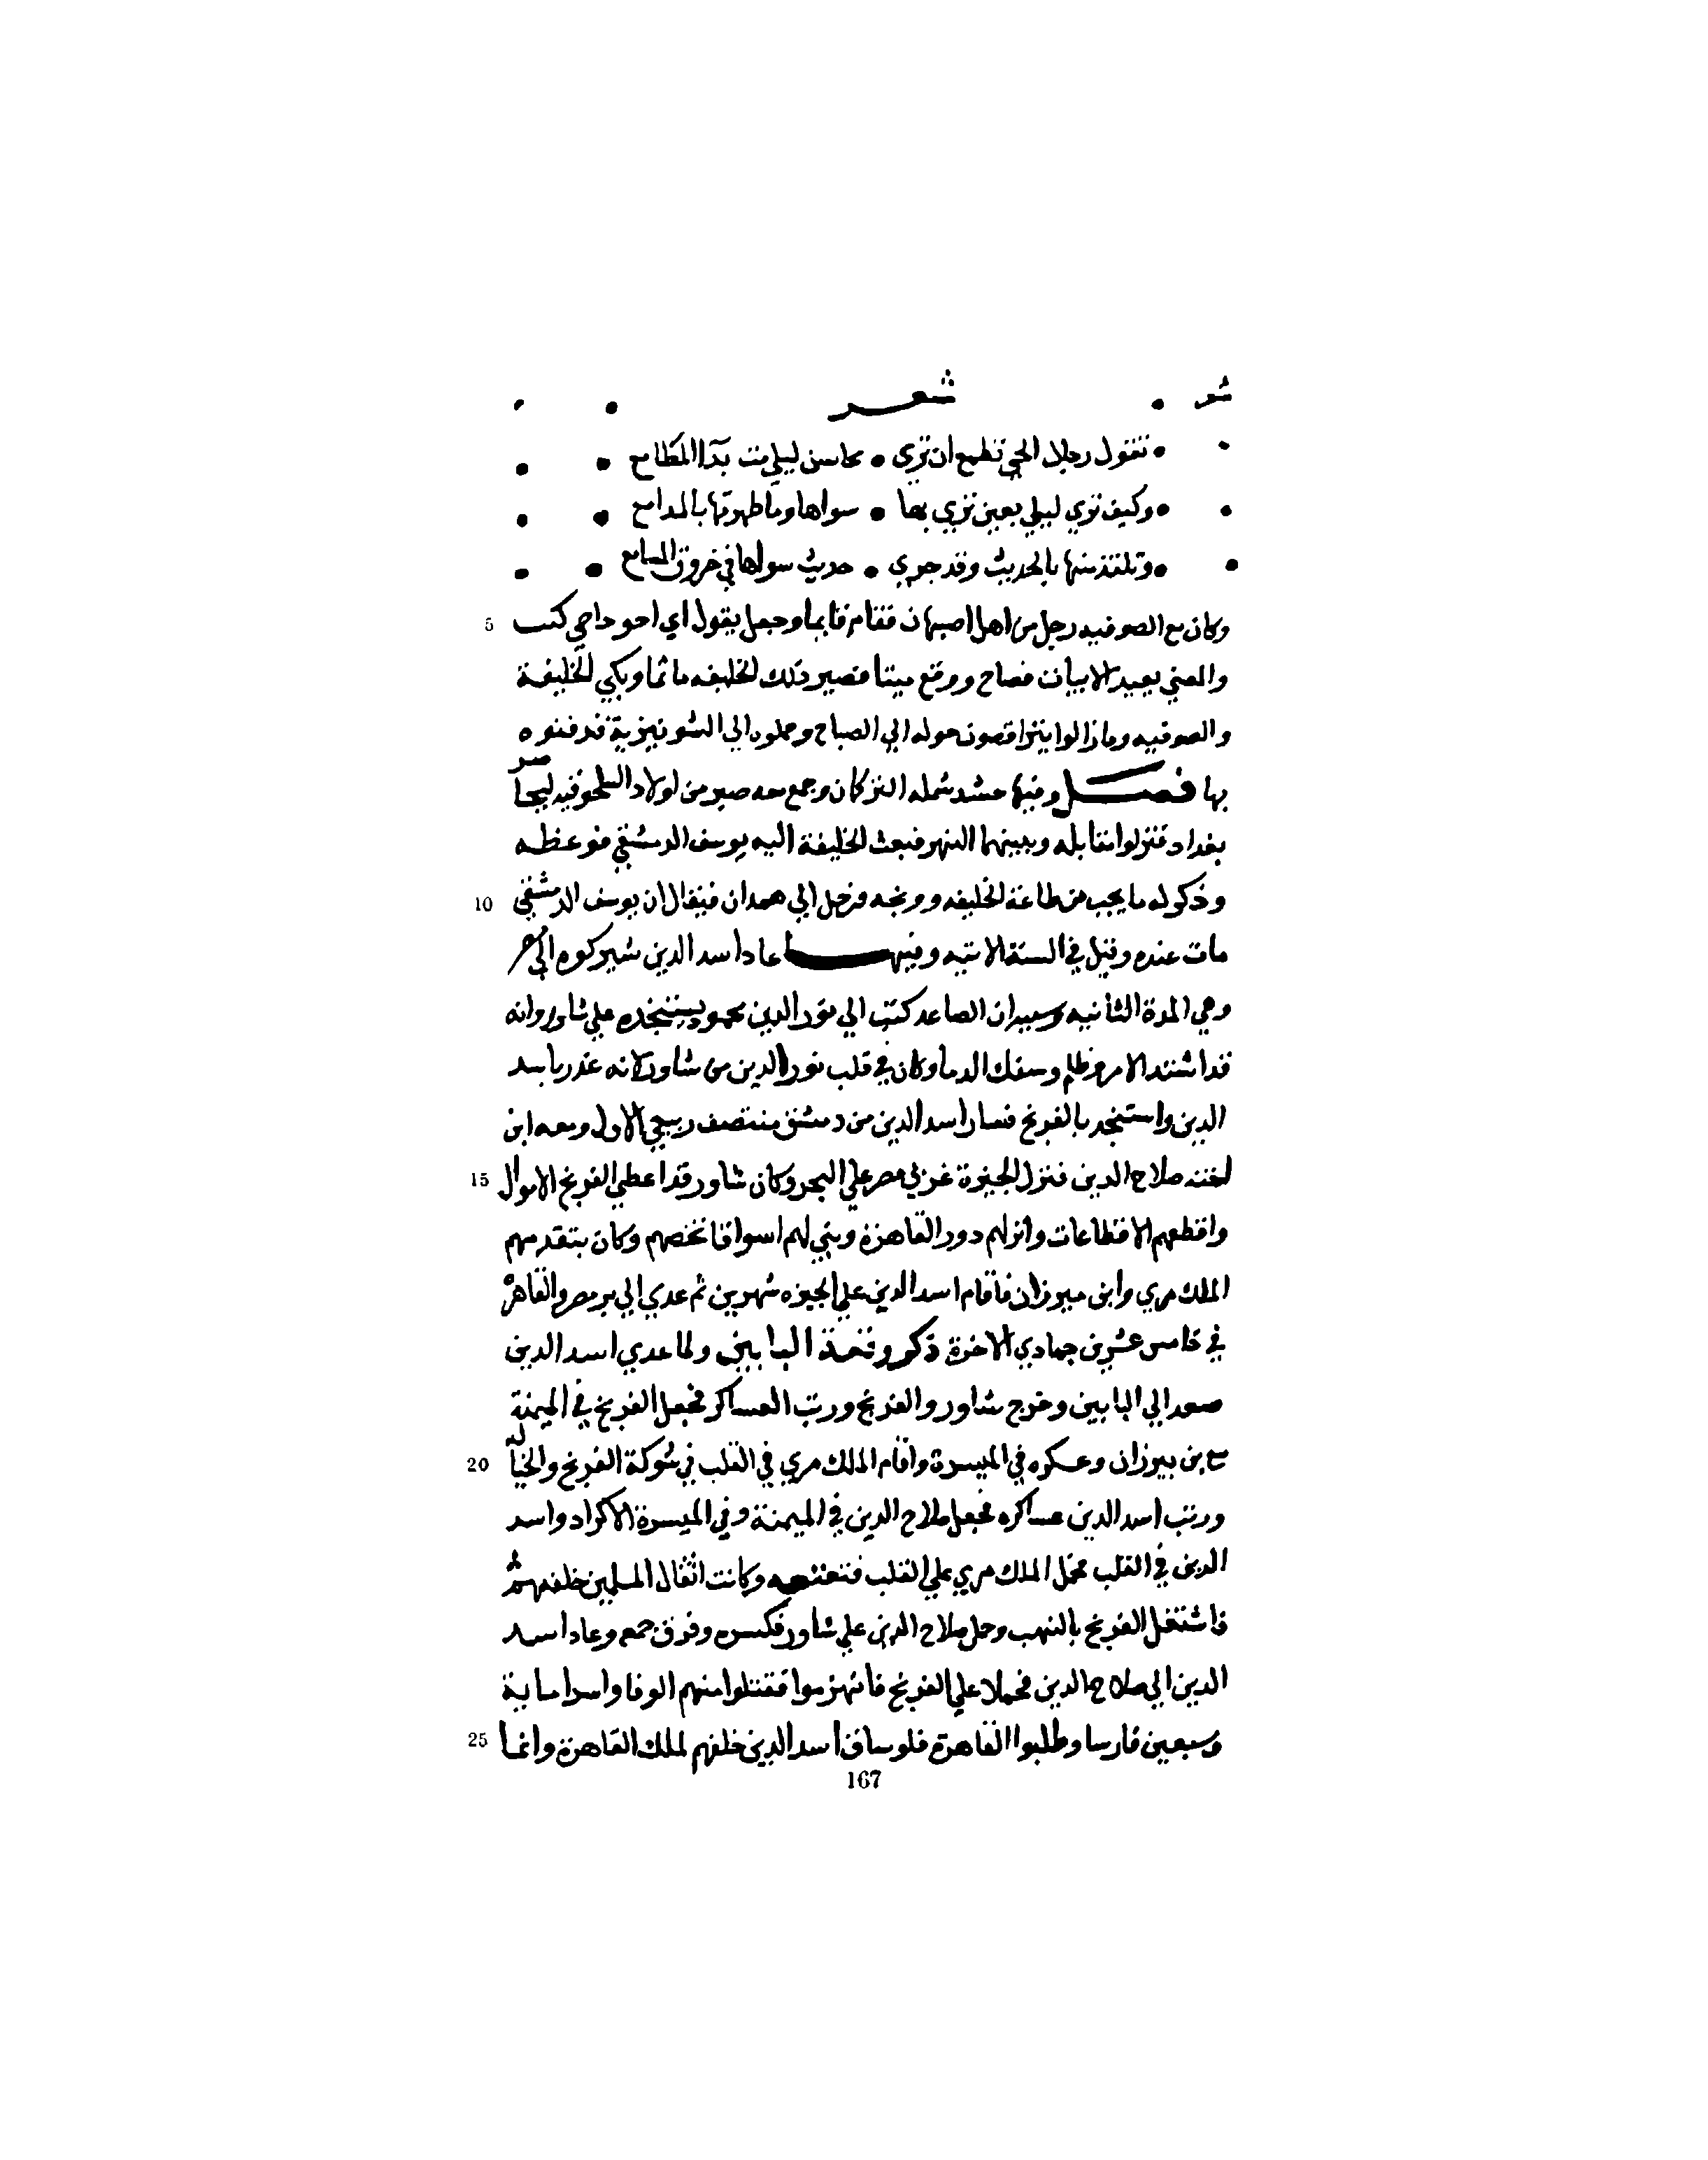 شعر شعر
تقول رجال الحي تطمع ان تري • محاسن ليلي مت بدآ المطامع
وكيف تري ليلي بعين تري بها • سواها وما طهرتها بالمدامع
وتلتذ منها بالحديث وقد جري • حديث سواها في خروق المسامع
وكان مع الصوفيه رجل من اهل اصبهان فقام قايما وجعل يقول اي احو داحي كفت 5
والمغني يعيد الابيات فصاح ووقع ميتا فصير ذلك الخليفه ماتما وبكي الخليفة
والصوفيه ومازالوا يتراقصون حوله الي الصباح وحملوه الي الشونيزية فدفنوه
بها فصل وفيها حشد شمله التركان وجمع معه صبي من اولاد السلجوقيه ليحاصر
بغداد فنزلوا مقابله وبينهما النهر فبعث الخليفة اليه يوسف الدمشقي فوعظه
وذكر له ما يجب من طاعة الخليفه ووبخه فرحل الي همدان فيقال ان يوسف الدمشقي 10
مات عنده وقيل في السنة الاتيه وفيها عاد اسد الدين شيركوه الي مصر
وهي المرة الثانيه وسببه ان العاضد كتب الي نور الدين محمود يستنجده علي شاور وانه
قد اشتد الامر وظلم وسفك الدما وكان في قلب نور الدين من شاور لانه غدر باسد
الدين واستنجد بالفرنج فسار اسد الدين من دمشق منتصف ربيع الاول ومعه ابن
اخته صلاح الدين فنزل الجيزة غربي مصر علي البحر وكان شاور قد اعطي الفرنج الاموال 15
واقطعهم الاقطاعات وانزلهم دور القاهرة وبني لهم اسواقا تخصهم وكان يتقدمهم
الملك مري وابن ميرزان فاقام اسد الدين علي الجيزه شهرين ثم عدي الي بر مصر والقاهرة
في خامس عشرين جمادي الاخرة ذكر وقعة البابين ولما عدي اسد الدين
صعد الي البابين وخرج شاور والفرنج ورتب العساكر فجعل الفرنج في الميمنة
مع بن بيرزان وعسكره في الميسرة واقام الملك مري في القلب في شوكة الفرنج والخيالة 20
ورتب اسد الدين عساكره فجعل صلاح الدين في الميمنة وفي الميسرة الاكراد واسد
الدين في القلب فحمل الملك مري علي القلب فتعتعه وكانت اثقال المسلمين خلفهم ثم
فاشتغل الفرنج بالنهب وحمل صلاح الدين علي شاور فكسره وفرق جمعه وعاد اسد
الدين الي صلاح الدين فحملا علي الفرنج فانهزموا فقتلوا منهم الوفا واسرا ماية
وسبعين فارسا وطلبوا القاهرة فلو ساق اسد الدين خلفهم لملك القاهرة وانما 25
167